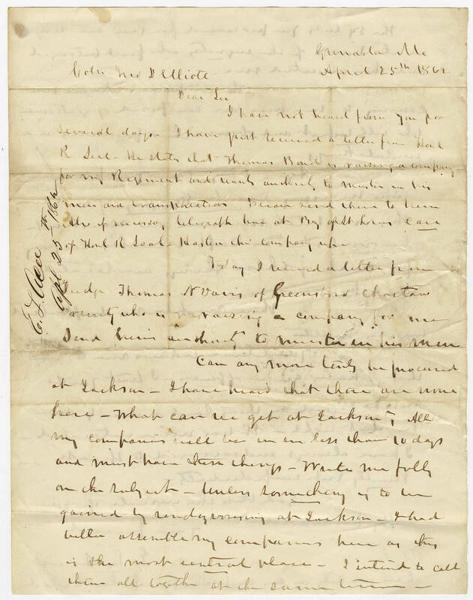 Grenada Mi
April 25th 1862
Coln Jno D Elliott
Dear Sir
I have not heard from you for
several days. I have just received a letter from Hon
R Seal. He states that Thomas is raising a company
for my Regiment and wants authority to muster in his
men and transportation. Please send them to him
telegraph him at Bay of St Louis care
of Hon R Seal. Hasten the company up
Today I received a letter from
Judge Thomas N Davis of Greensboro Choctaw
County who is raising a company for me
Send him authority to muster in his men
Can any more tents be procured
at Jackson - I have heard that there are none
here - What can we get at Jackson, All
my companies will be in in less than 10 days
and must have these things - Write me fully
on the subject - Unless something is to be
gained by rendezvousing at Jackson - I had
better assemble my companies here as this
is the most central place - I intend to call
them all together at the same time -
April 25th 1862